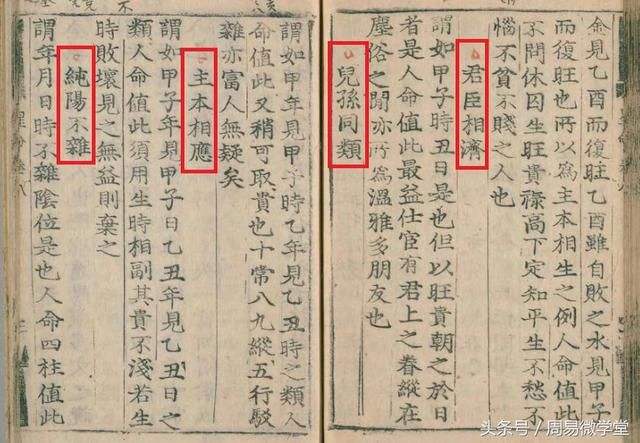 金見乙酉而復旺乙酉雖自敗之水見甲子
而復旺也所以為主本相生之例人命值此
不問休囚生旺貴祿高下定知平生不愁不
惱不貧不賤之人也
君臣相濟
謂如甲子時丑日是也但以旺貴朝之於日
者是人命值此最益仕宦有君上之眷縱在
塵俗之間亦所為溫雅多朋友也
兒孫同類
謂如甲年見甲子時乙年見乙丑時之類人
命值此又稍可取貴也十常八九縱五行駁
雜亦富人無疑矣
主本相應
謂如甲子年見甲子日乙丑年見乙丑日之
類人命值此須用生時相副其貴不淺若生
時敗壞見之無益則棄之
純陽不雜
謂年月日時不雜陰位是也人命四柱值此
头条号 / 周易微学堂